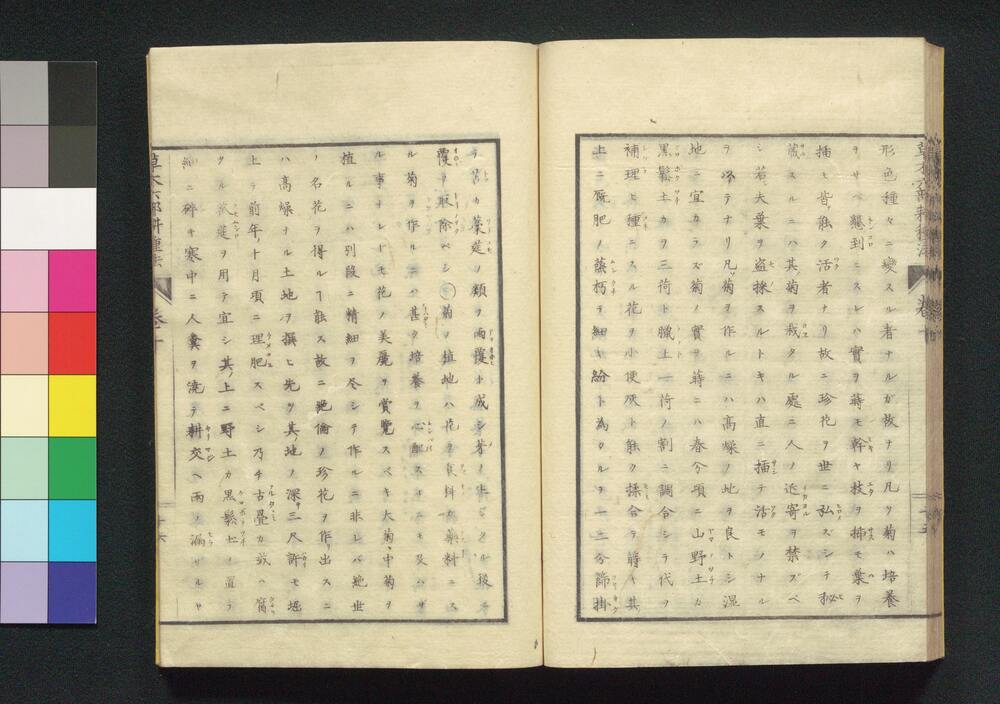 形色種々ニ變スル者ナルガ故ナリ凡ソ菊ハ培養
ヲサヘ懇到ニスレハ實ヲ蒔モ幹ヤ枝ヲ挿モ葉ヲ
插モ皆能ク活者ナリ故ニ珍花ヲ世ニ弘ズシテ秘
藏スルニハ其菊ヲ栽タル處ニ人ノ近寄ヲ禁ズベ
シ若夫葉ヲ盗採スルトキハ直ニ插テ活モノナル
ヲ以テナリ凡菊ヲ作ルニハ高燥ノ地ヲ良トシ濕
地ニ宜カラズ菊ノ實ヲ蒔ニハ春分頃ニ山野土カ
黒鬆土カヲ三荷ト臘土一荷ノ割ニ調合シテ代ヲ
補理ヒ種ニスル花ヲ小便灰ト能ク揉合テ蒔キ其
上ニ厩肥ノ蒸朽テ細キ粉ト為タルヲ一二分篩掛
テ苫カ藁莚ノ類ヲ雨覆ト成シ芽ノ生
覆ヲ取除ベシ菊ノ植地ハ花ヲ食料カ藥料ニス
ル菊ヲ作ルニハ甚ク培養ヲ心配スルニモ及ハザ
ル事ナレドモ花ノ美麗ヲ賞覽スベキ大菊中菊ヲ
植ルニハ別段ニ精細ヲ盡シテ作ルニ非レバ絶世
ノ名花ヲ得ルヿ能ス故ニ絶倫ノ珍花ヲ作リ出スニ
ハ高燥ナル土地ヲ撰ヒ先ヅ其地ノ深サ三尺許モ堀
上テ前年十月頃ニ理肥スベシ乃チ古疊カ或ハ腐
タル莚ヲ用テ宜シ其上ニ野土カ黒鬆土ヲ置テ
細ニ碎キ寒中ニ人糞ヲ澆テ耕交ヘ雨ノ漏ザルヤ
草木六部耕種法
卷十
十六